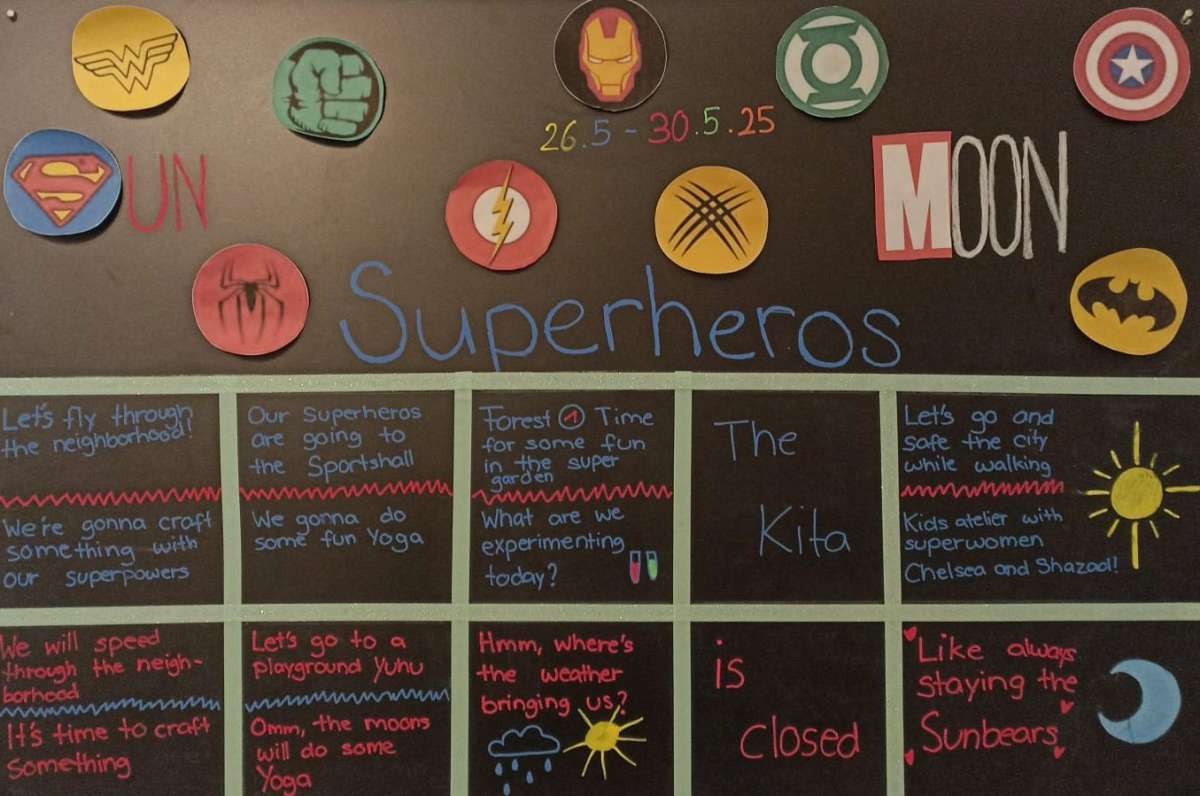 26.5 - 30.5.25
SUN
MOON
Superheros
Let's fly through
the neighborhood!
We're gonna craft
something with
our superpowers
Our Superheros
are going to
the Sportshall
We gonna do
some fun Yoga
Forest Time
for some fun
in the super
garden
What are we
experimenting
today?
The
Kita
Let's go and
safe the city
while walking
Kids atelier with
superwomen
Chelsea and Shazaal!
We will speed
through the neigh-
borhood
It's time to craft
something
Let's go to a
playground Yuhu
Omm, the moons
will do some
Yoga
Hmm, where's
the weather
bringing us?
is
closed
Like always
staying the
Sunbears